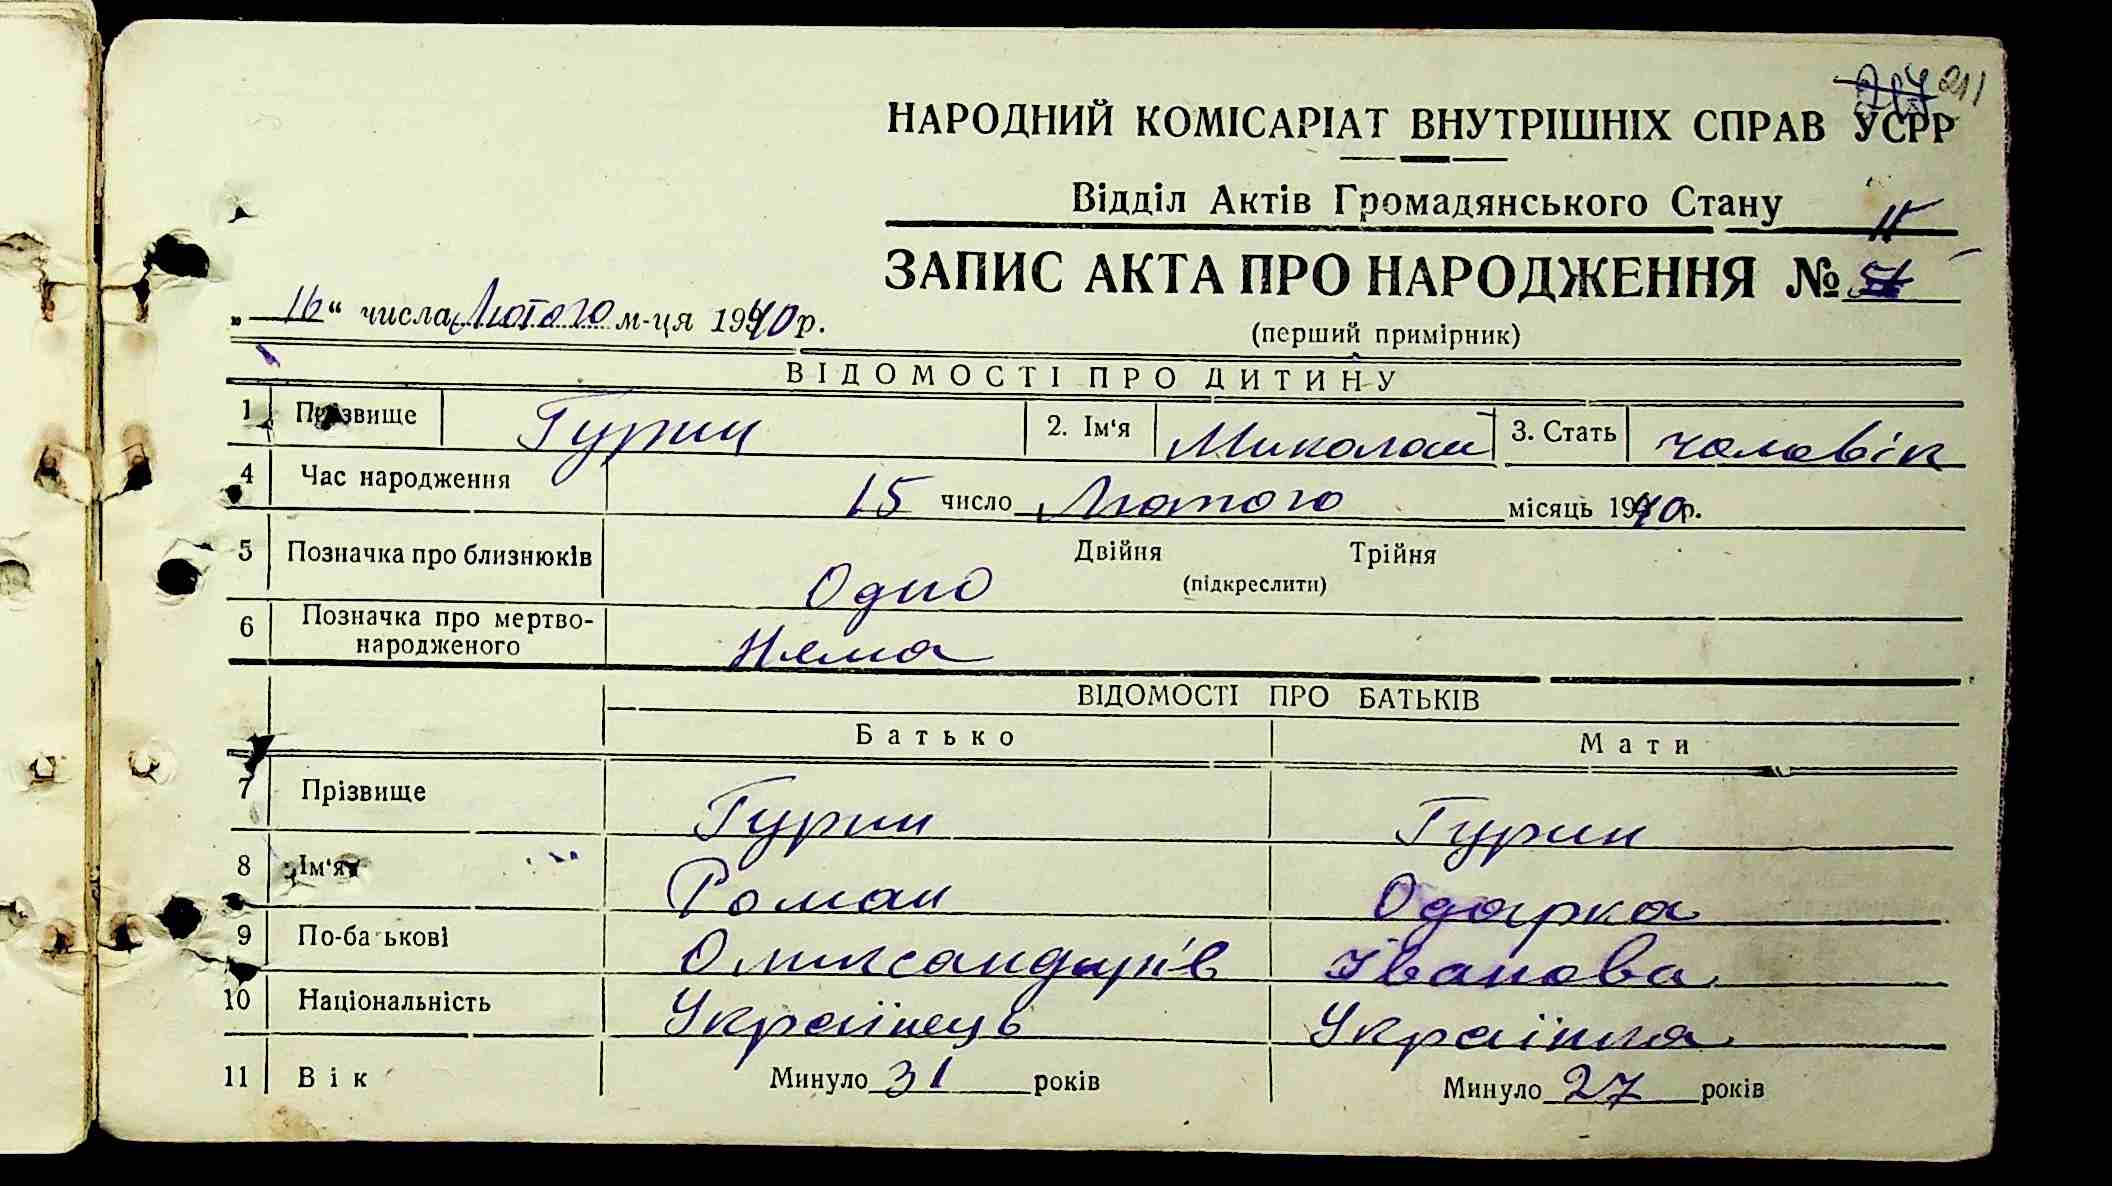 211
НАРОДНИЙ КОМІСАРІАТ ВНУТРІШНІХ СПРАВ УСРР
Відділ Актів Громадянського Стану
ЗАПИС АКТА ПРО НАРОДЖЕННЯ №
„16“ числа Лютого м-ця 1940 р.
(перший примірник)
ВІДОМОСТІ ПРО ДИТИНУ
1 Прізвище Гурин 2. Ім‘я Миколаи 3. Стать чоловік
4 Час народження 15 число Лютого місяць 1940 р.
5 Позначка про близнюків Одно Двійня Трійня
(підкреслити)
6 Позначка про мертво-
народженого Няма
ВІДОМОСТІ ПРО БАТЬКІВ
Батько Мати
7 Прізвище Гурин Гурин
8 Ім‘я Роман Одарка
9 По-батькові Оликсандрів Іванова
10 Національність Українець Українка
11 Вік Минуло 31 років Минуло 27 років